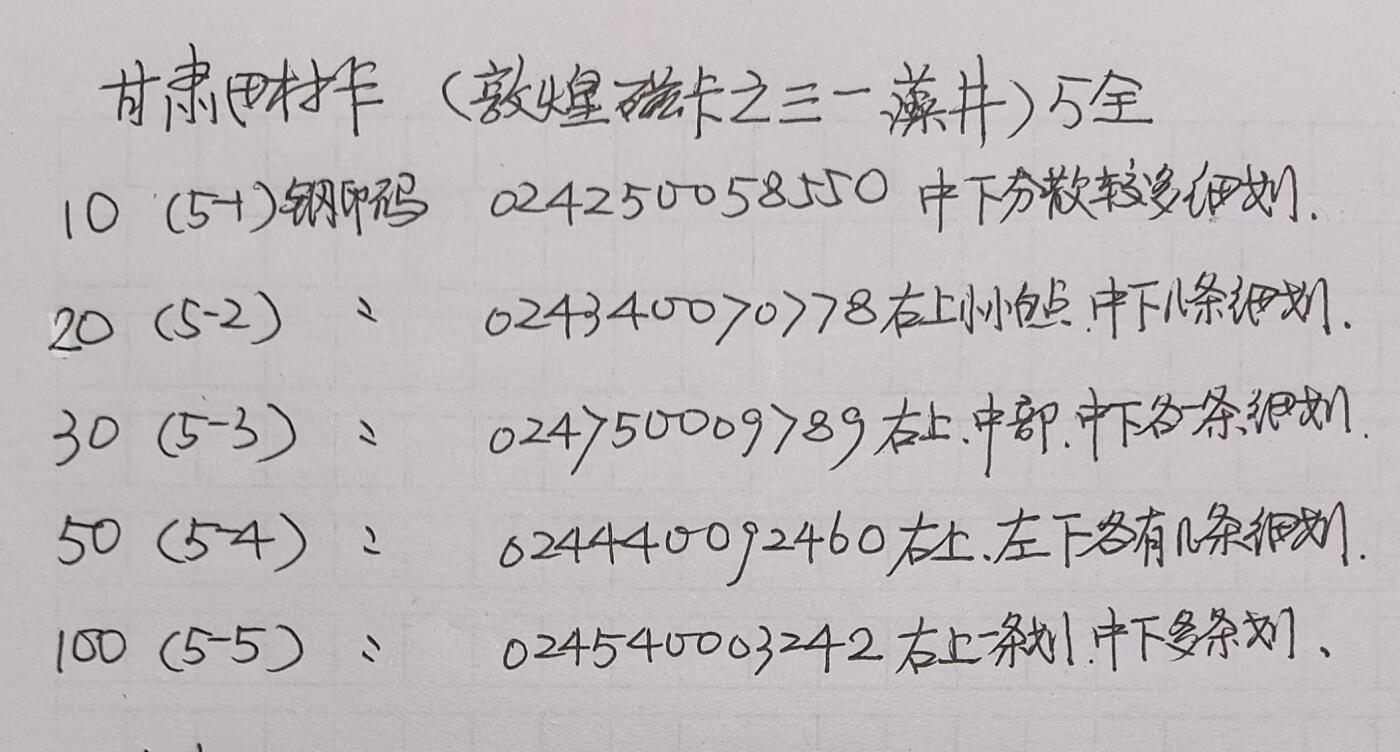 甘肃田村卡（敦煌磁卡之三一藻井）5全
10 (5-1)钢印码 024250058550 中下分散较多细划.
20 (5-2) 〃 024340070778右上小小白点.中下几条细划.
30 (5-3) 〃 024750009789右上.中部.中下各一条细划.
50 (5-4) 〃 024440092460右上.左下各有几条细划.
100 (5-5) 〃 024540003242右上一条划.中下多条划、